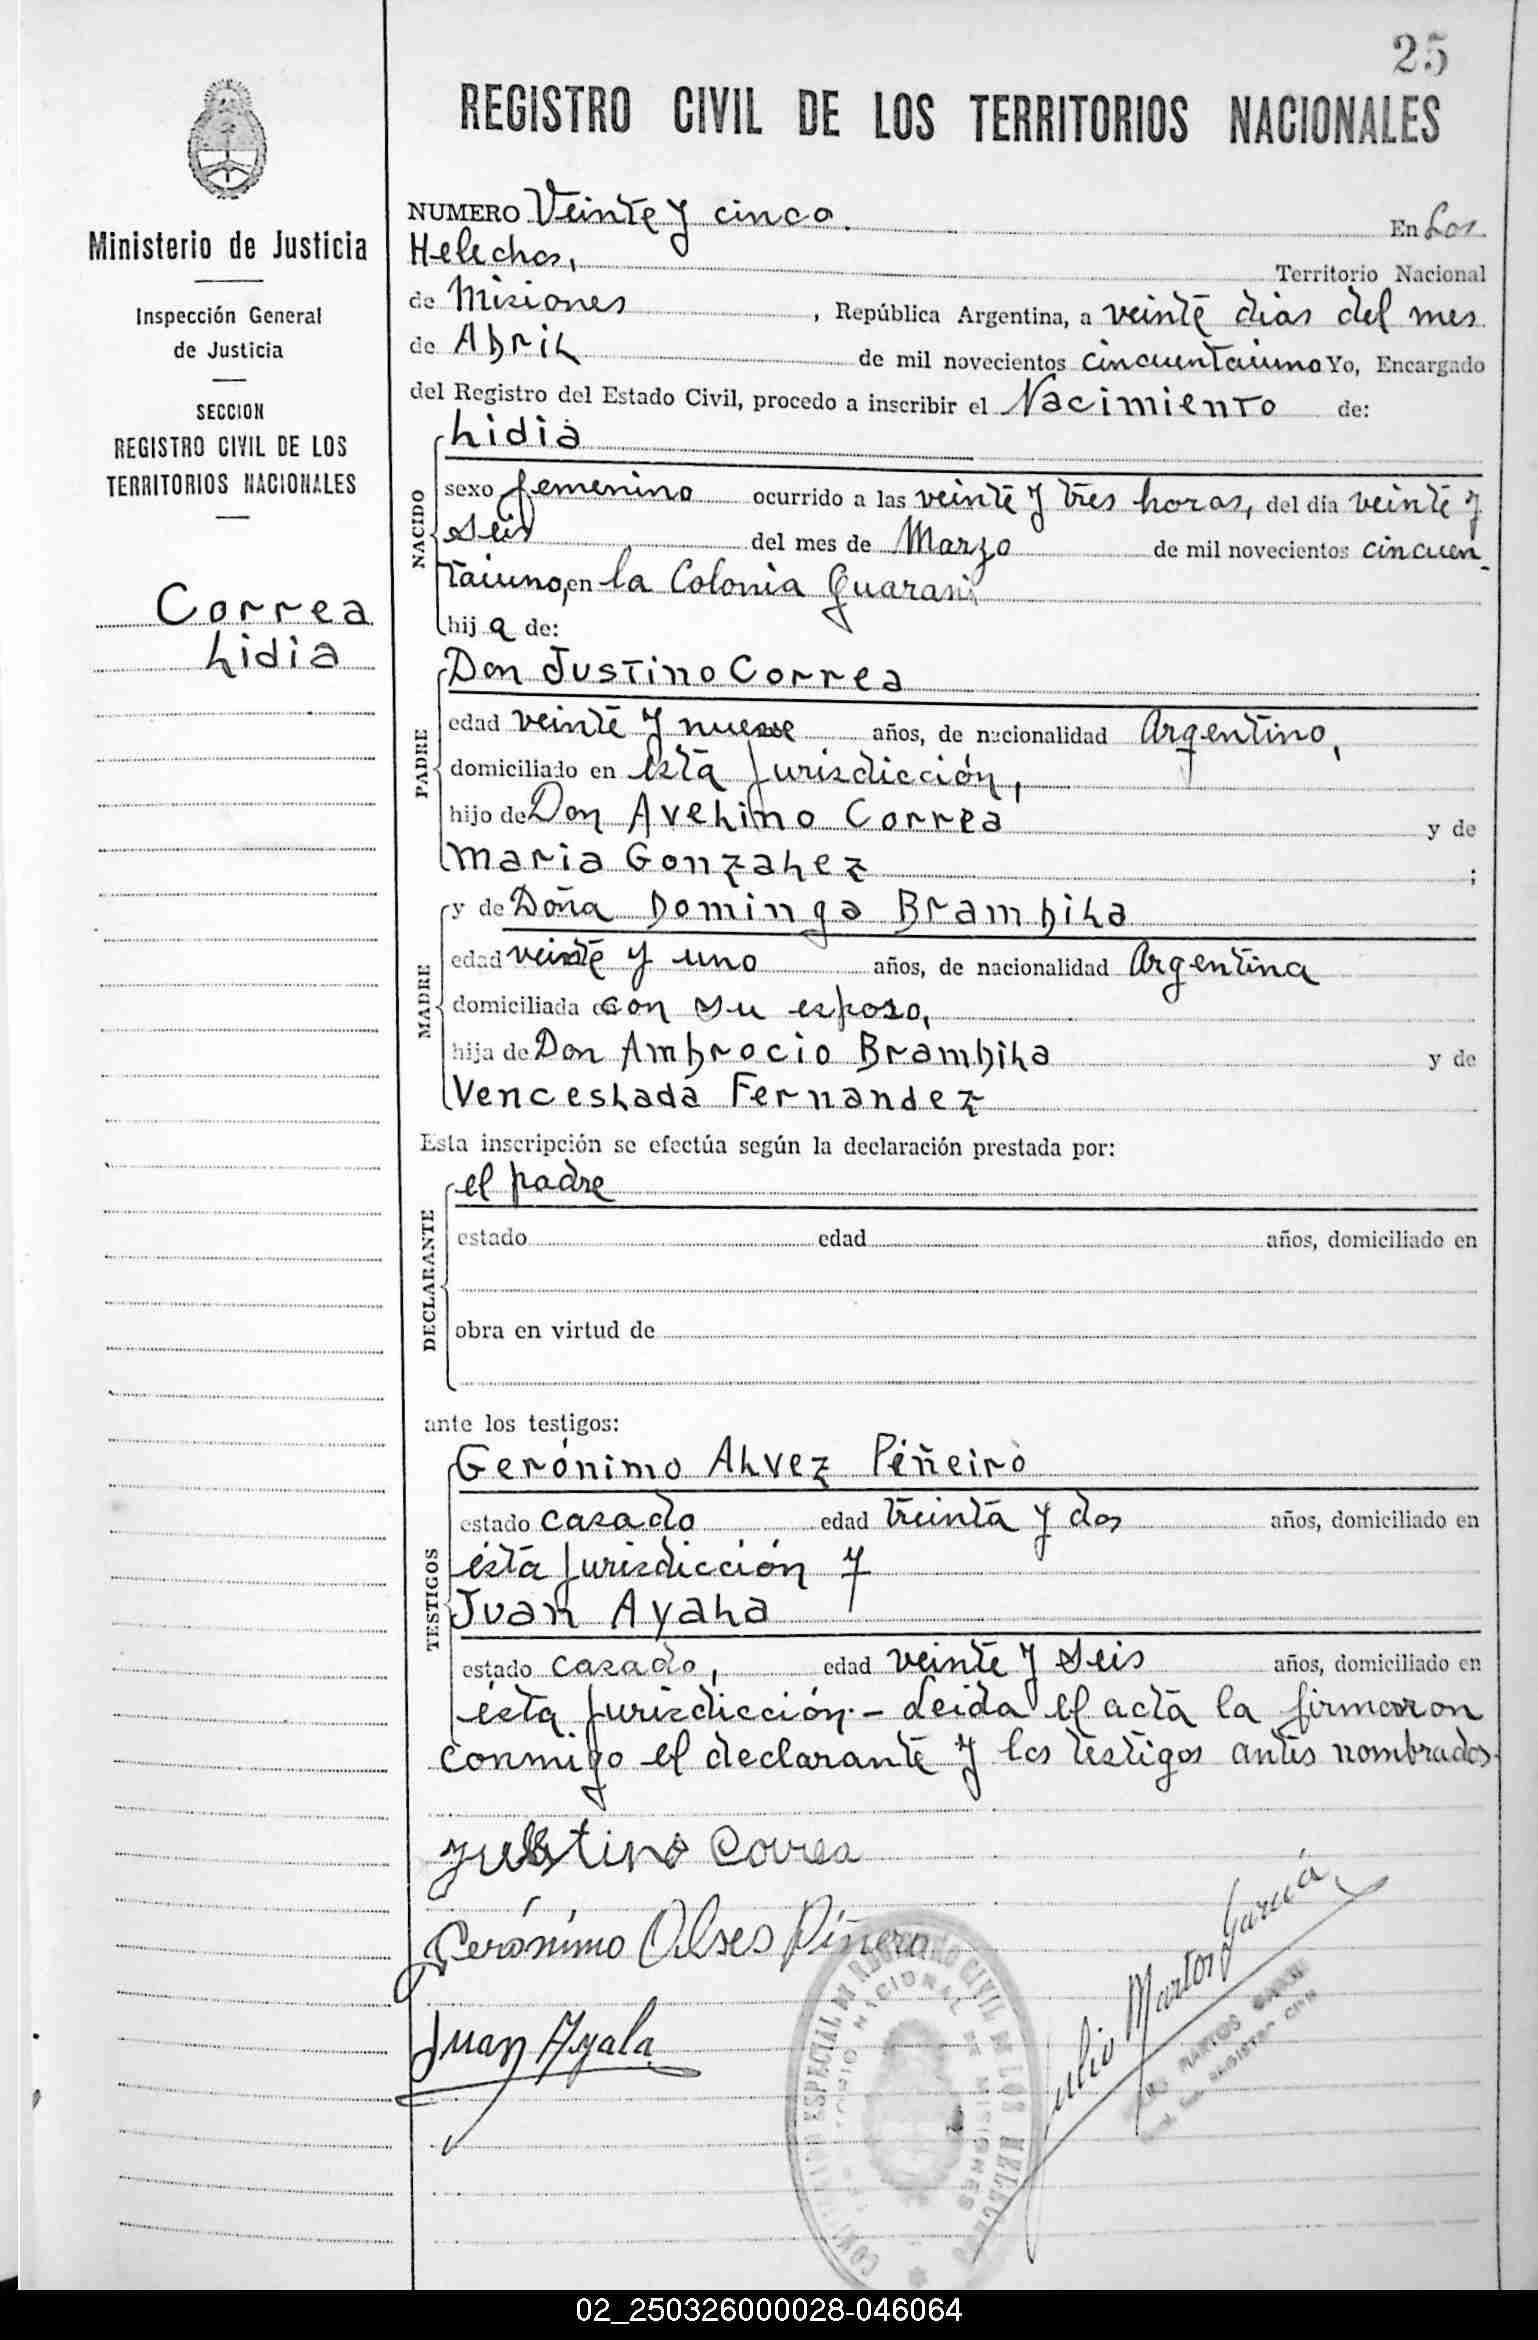 25
REGISTRO CIVIL DE LOS TERRITORIOS NACIONALES
Ministerio de Justicia
Inspección General
de Justicia
SECCION
REGISTRO CIVIL DE LOS
TERRITORIOS NACIONALES
Correa
Lidia
NUMERO Veinte y cinco. En Los
Helechos, Territorio Nacional
de Misiones, República Argentina, a veinte dias del mes
de Abril de mil novecientos cincuentaiuno Yo, Encargado
del Registro del Estado Civil, procedo a inscribir el Nacimiento de:
NACIDO
Lidia
sexo femenino ocurrido a las veinte y tres horas, del día veinte y
seis del mes de Marzo de mil novecientos cincuen-
taiuno, en la Colonia Guarani
hija de:
PADRE
Don Justino Correa
edad veinte y nueve años, de nacionalidad Argentino,
domiciliado en ésta Jurisdicción,
hijo de Don Avelino Correa y de
Maria Gonzalez ;
MADRE
y de Doña Dominga Brambila
edad veinte y uno años, de nacionalidad Argentina
domiciliada con su esposo,
hija de Don Ambrocio Brambila y de
Venceslada Fernandez
Esta inscripción se efectúa según la declaración prestada por:
DECLARANTE
el padre
estado edad años, domiciliado en
obra en virtud de
ante los testigos:
TESTIGOS
Gerónimo Alvez Piñeiro
estado casado edad treinta y dos años, domiciliado en
ésta Jurisdicción y
Juan Ayala
estado casado, edad veinte y seis años, domiciliado en
ésta Jurisdicción.- Leida el acta la firmaron
conmigo el declarante y los testigos antes nombrados.
Justino Correa
Gerónimo Alves Piñero
Juan Ayala
Julio Martos García
REGISTRO CIVIL DE LOS HELECHOS
NACIONAL DE MISIONES
02_250326000028-046064